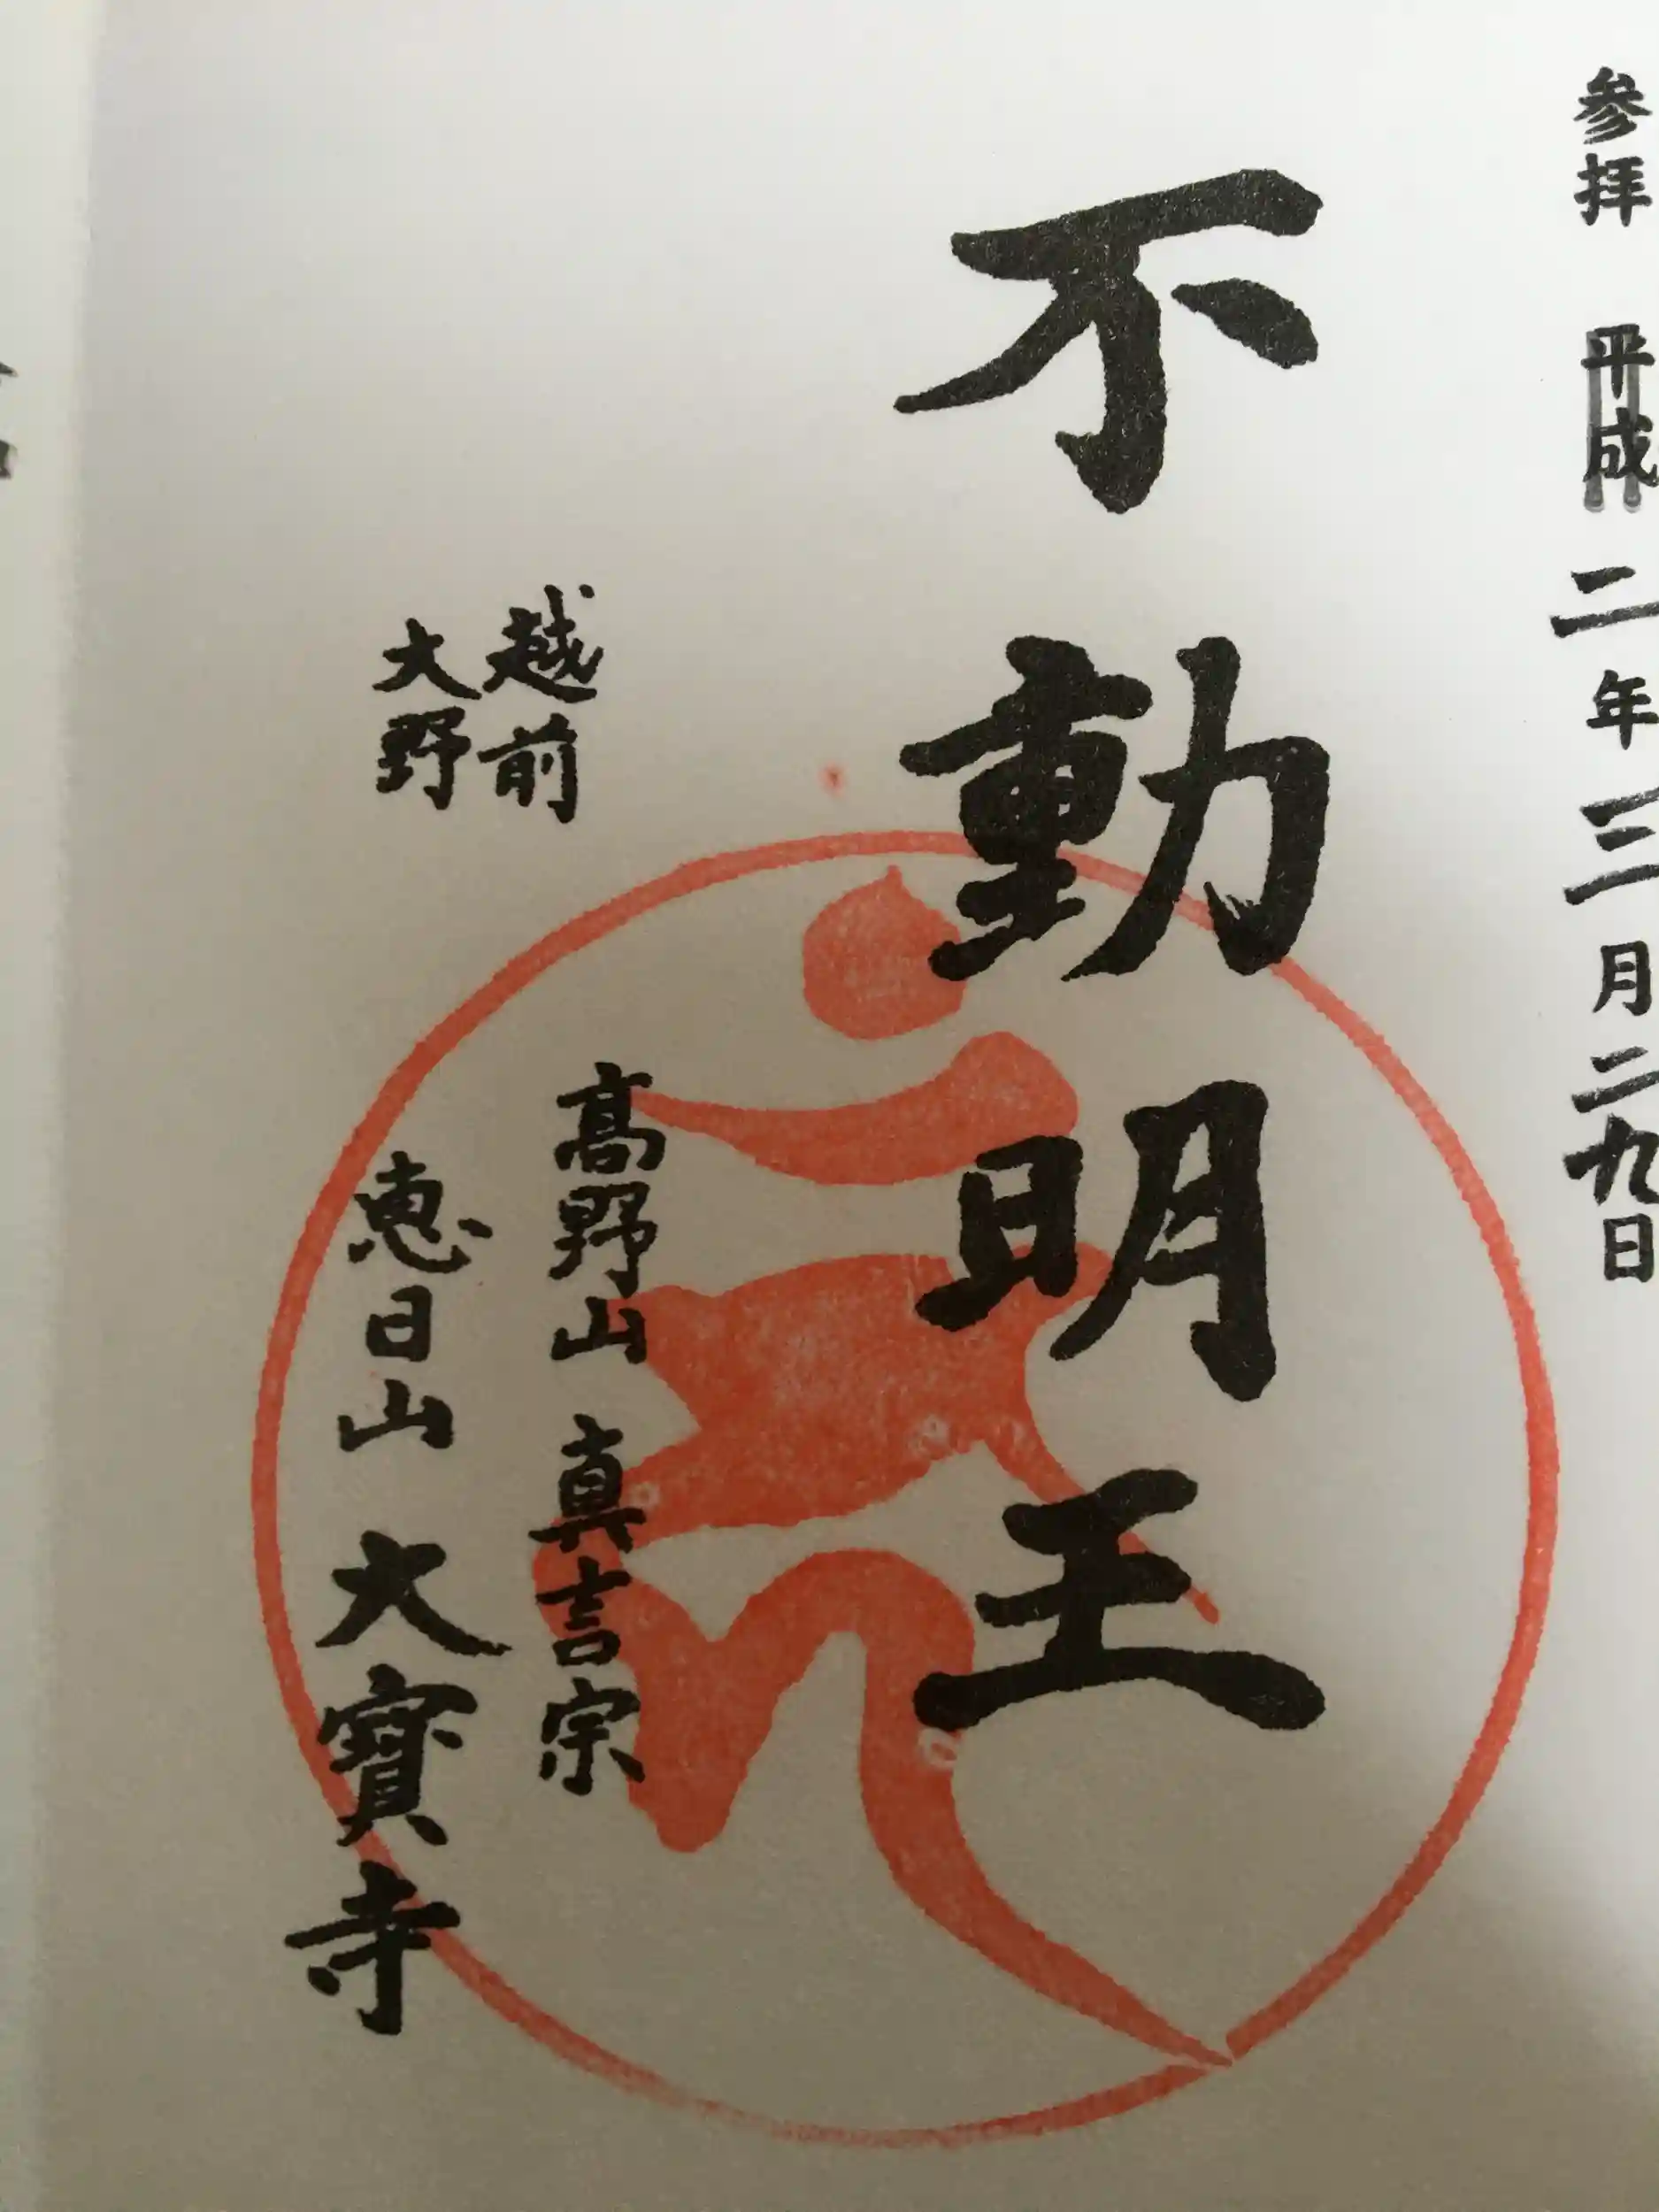 参拝 平成 二年三月二九日
不動明王
越前
大野
高野山 真言宗
恵日山 大寳寺